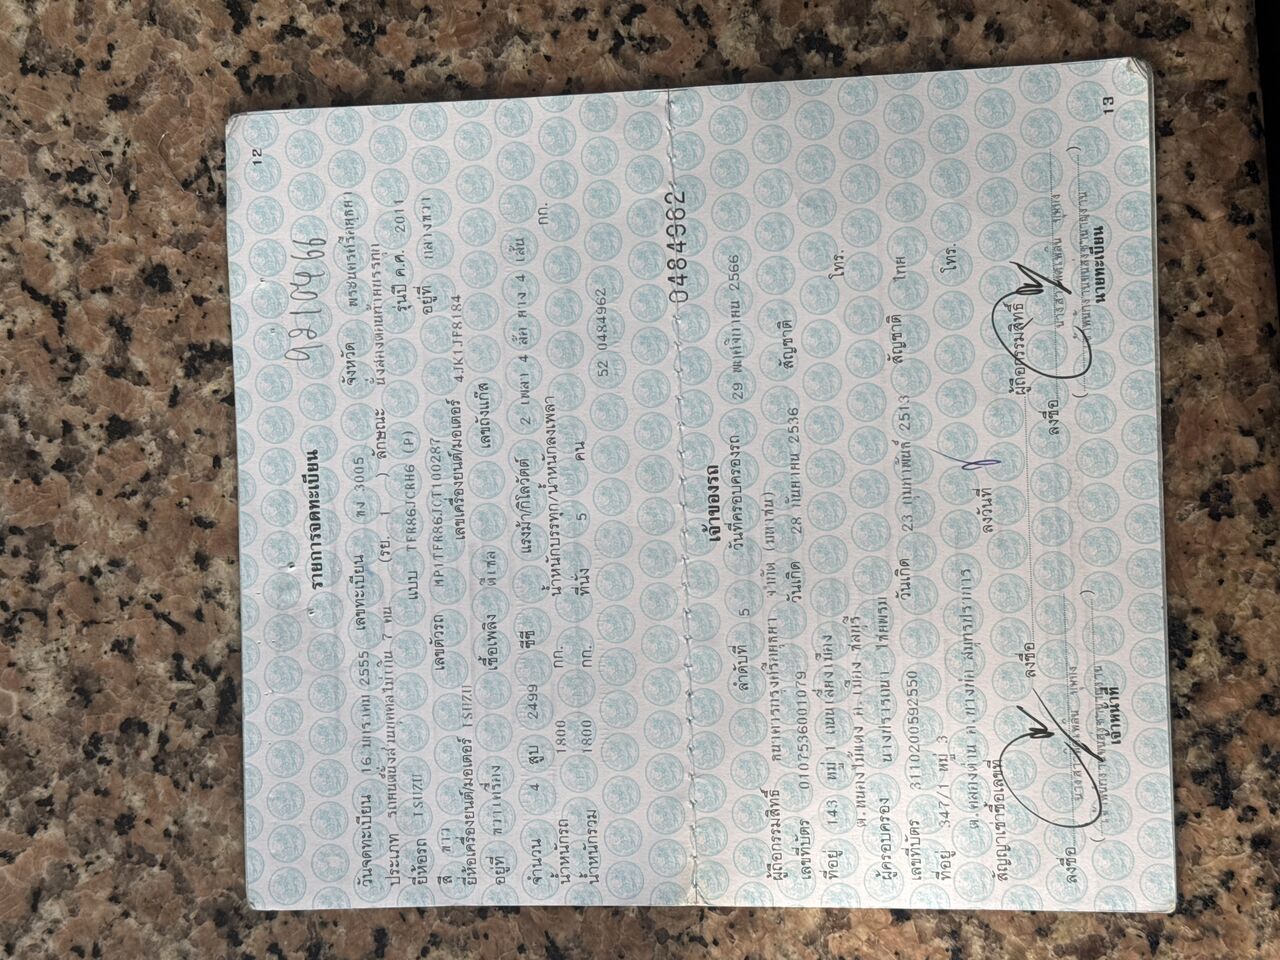 12
92104966
" รายการจดทะเบียน "
วันจดทะเบียน 16 มกราคม 2555 เลขทะเบียน 3005 จังหวัด พระนครศรีอยุธยา
ประเภท รถยนต์นั่งส่วนบุคคลไม่เกิน 7 คน (รย. 1 ) ลักษณะ นั่งสองตอนท้ายบรรทุก
ยี่ห้อรถ ISUZU แบบ TFR86JCRH6 (P) รุ่นปี ค.ศ. 2011
สี ขาว เลขตัวรถ MP1TFR86JCT100287 อยู่ที่ กลางขวา
ยี่ห้อเครื่องยนต์/มอเตอร์ ISUZU เลขเครื่องยนต์/มอเตอร์ 4JK1JF8184
อยู่ที่ ขวาเครื่อง เชื้อเพลิง ดีเซล เลขถังแก๊ส
จำนวน 4 สูบ 2499 ซีซี แรงม้า/กิโลวัตต์ 2 เพลา 4 ล้อ ยาง 4 เส้น
น้ำหนักรถ 1800 กก. น้ำหนักบรรทุก/น้ำหนักลงเพลา กก.
น้ำหนักรวม 1800 กก. ที่นั่ง 5 คน
52 0484962
0484962
เจ้าของรถ
ลำดับที่ 5 วันที่ครอบครองรถ 29 พฤศจิกายน 2566
ผู้ถือกรรมสิทธิ์ ธนาคารกรุงศรีอยุธยา จำกัด (มหาชน)
เลขที่บัตร 0107536001079 วันเกิด 28 กันยายน 2536 สัญชาติ
ที่อยู่ 143 หมู่ 1 ถนนเลี่ยงเมือง โทร.
ต.หนองไม้แดง อ.เมือง ชลบุรี
ผู้ครอบครอง นางปรารถนา ไชยพรม
เลขที่บัตร 3110200592550 วันเกิด 23 กุมภาพันธ์ 2513 สัญชาติ ไทย
ที่อยู่ 347/1 หมู่ 3 โทร.
ต.คลองด่าน อ.บางบ่อ สมุทรปราการ
สัญญาเช่าซื้อเลขที่ ลงวันที่
ลงชื่อ ผู้ถือกรรมสิทธิ์
ลงชื่อ ลงชื่อ
เจ้าหน้าที่ นายทะเบียน
13